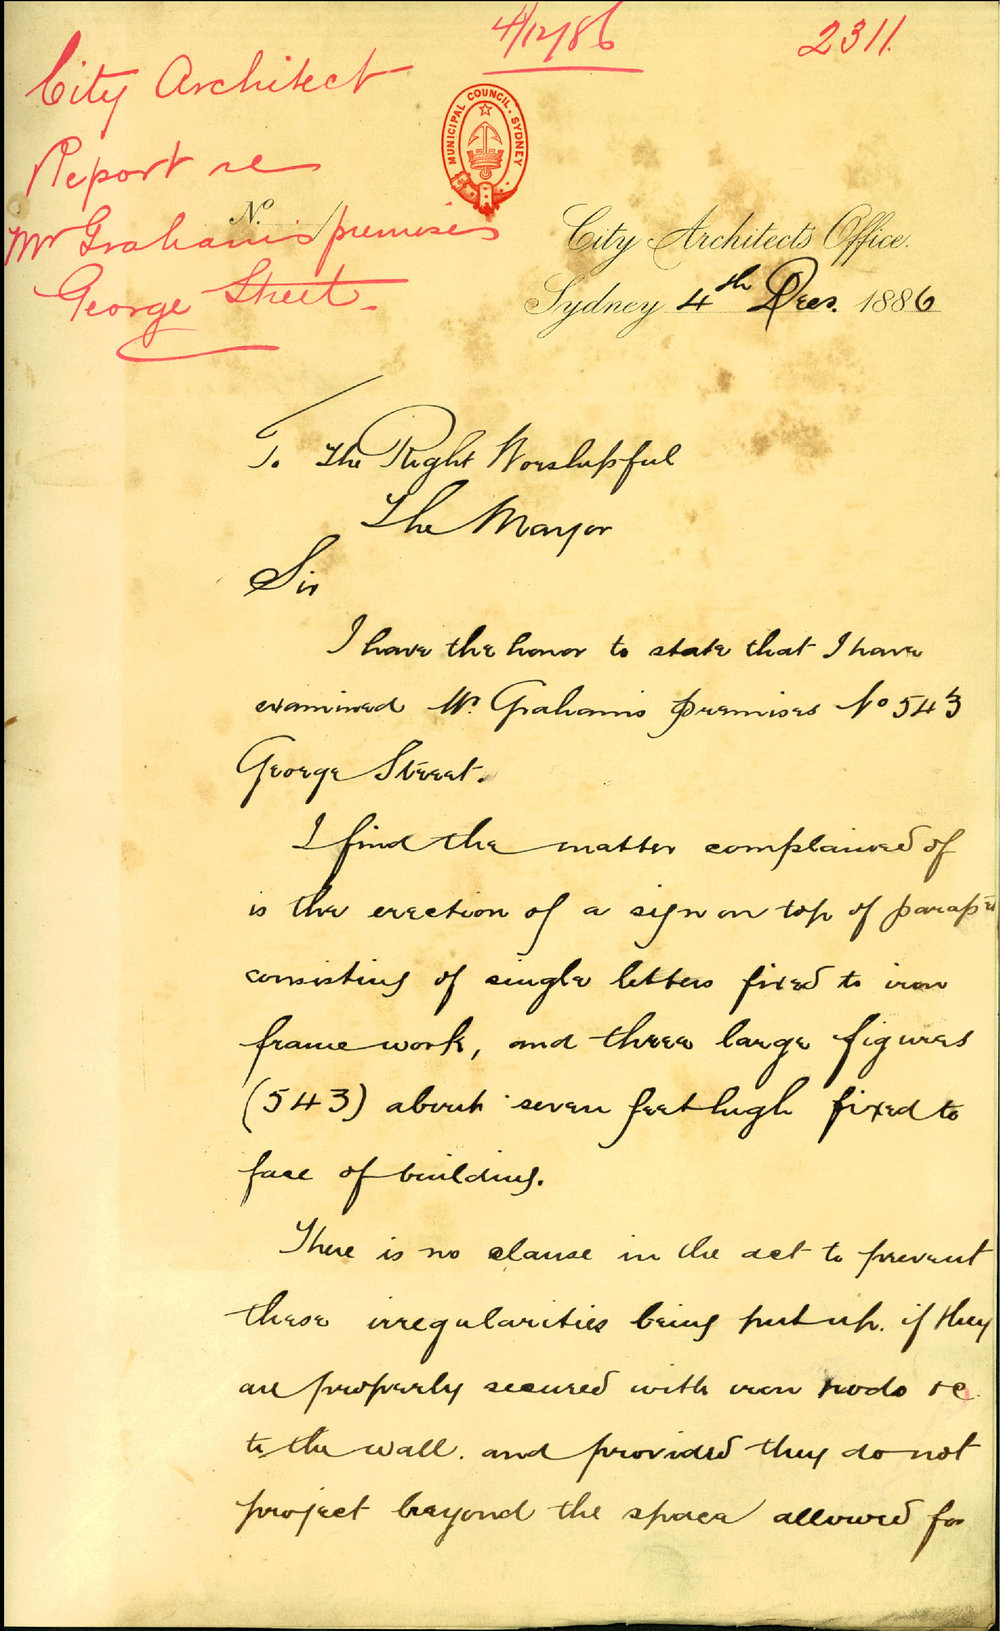 4/12/86
2311.
City Architect
Report re
Mr Graham's premises
George Street.
MUNICIPAL COUNCIL · SYDNEY
No.
City Architects Office.
Sydney 4th Decr. 1886
To The Right Worshipful
The Mayor
Sir
I have the honor to state that I have
examined Mr. Graham's premises No 543
George Street.
I find the matter complained of
is the erection of a sign on top of parapet
consisting of single letters fixed to iron
frame work, and three large figures
(543) about seven feet high fixed to
face of building.
There is no clause in the act to prevent
these irregularities being put up. if they
are properly secured with iron rods &c
to the wall. and provided they do not
project beyond the space allowed for